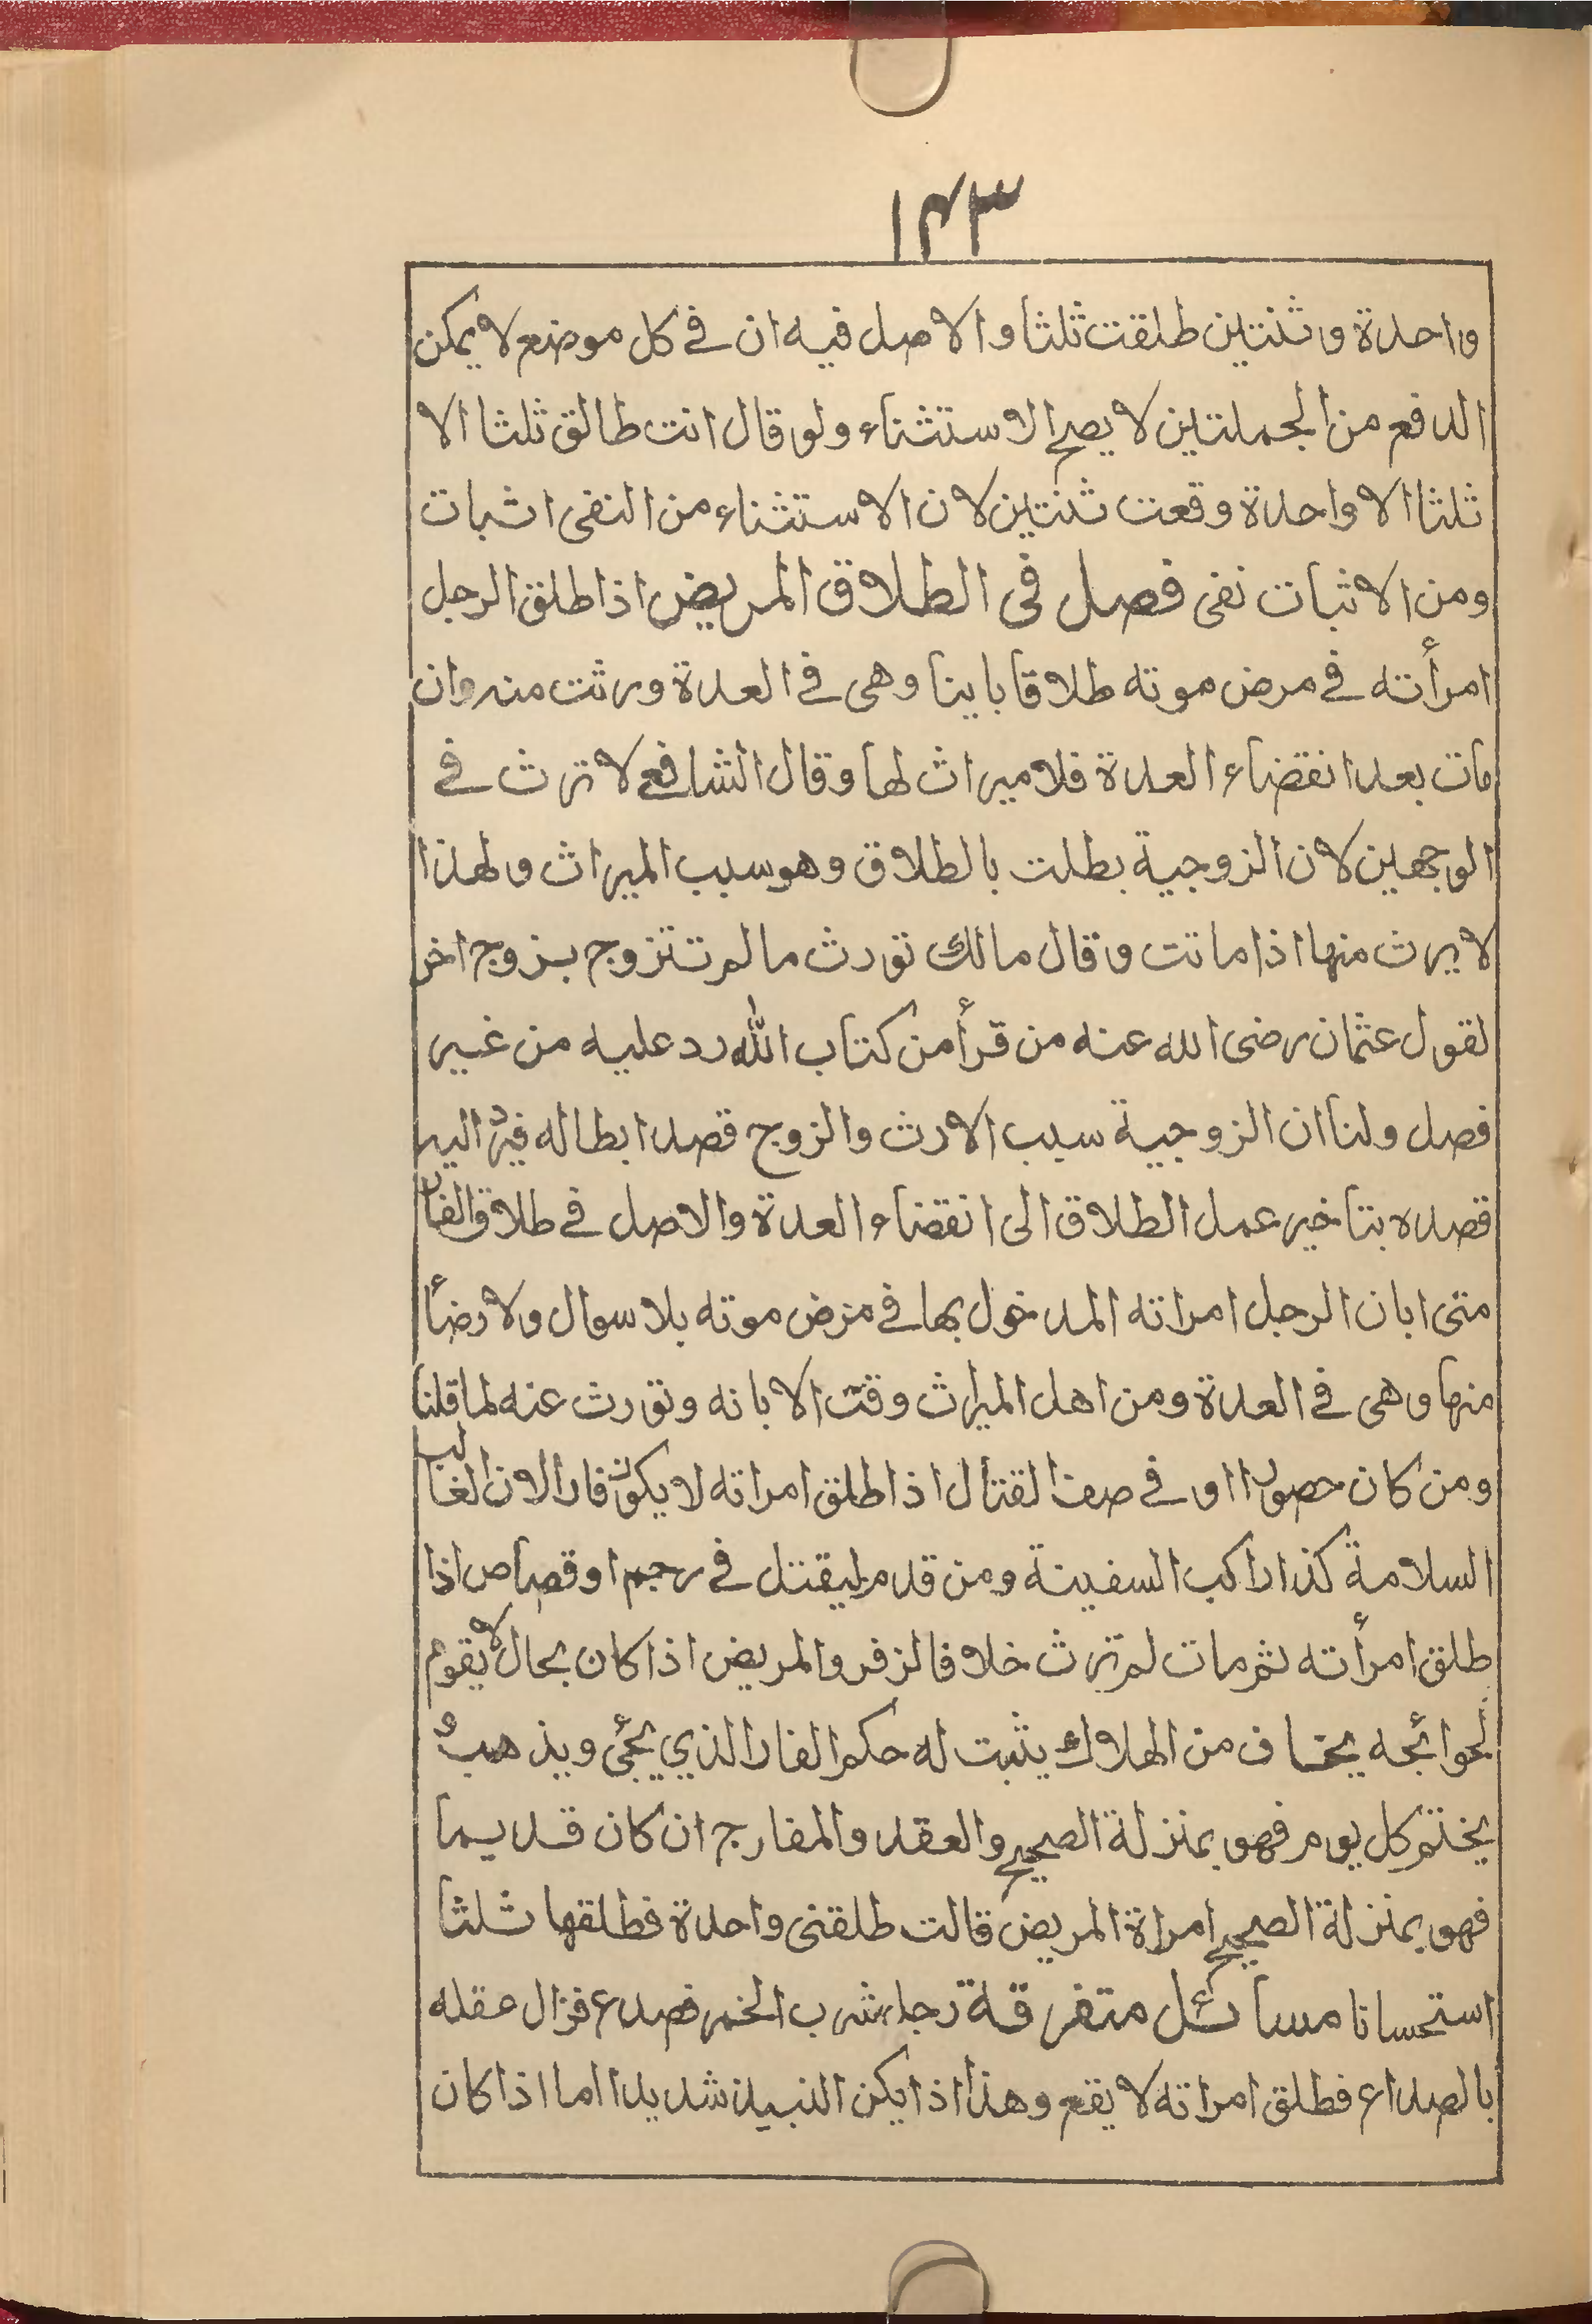 ۱۴۳
واحدة وثنتين طلقت ثلثا والاصل فيه ان في كل موضع لا يمكن
الدفع من الجملتين لا يصح الاستثناء ولو قال انت طالق ثلثا الا
ثلثا الا واحدة وقعت ثنتين لان الاستثناء من النفى اثبات
ومن الاثبات نفى فصل فى الطلاق المريض اذا طلق الرجل
امرأته في مرض موته طلاقا باينا وهى في العدة ورثت منه وان
مات بعد انقضاء العدة فلا ميراث لها وقال الشافعي لا ترث في
الوجهين لان الزوجية بطلت بالطلاق وهو سبب الميراث ولهذا
لا يرث منها اذا ماتت وقال مالك تورث ما لم تتزوج بزوج اخر
لقول عثمان رضى الله عنه من قرأ من كتاب الله رد عليه من غير
فصل ولنا ان الزوجية سبب الارث والزوج قصد ابطاله فيرد اليه
قصده بتاخير عمل الطلاق الى انقضاء العدة والاصل في طلاق الفار
متى ابان الرجل امراته المدخول بها في مرض موته بلا سوال ولا رضأ
منها وهى في العدة ومن اهل الميراث وقت الابانه وتورث عنه لما قلنا
ومن كان حصورا او في صف القتال اذا طلق امراته لا يكون فارا لان الغالب
السلامة كذا راكب السفينة ومن قدم ليقتل في رجم او قصاص اذا
طلق امرأته ثم مات لم ترث خلافا لزفر والمريض اذا كان بحال لا يقوم
لحوائجه يخاف من الهلاك يثبت له حكم الفار الذي يجئ ويذهب و
يختم كل يوم فهو بمنزلة الصحيح والعقد والمفارج ان كان قديما
فهو بمنزلة الصحيح امراة المريض قالت طلقنى واحدة فطلقها ثلثا
استحسانا مسائل متفرقة رجل شرب الخمر فصدع فزال عقله
بالصداع فطلق امراته لا يقع وهذا اذا يكن النبيذ شديدا اما اذا كان